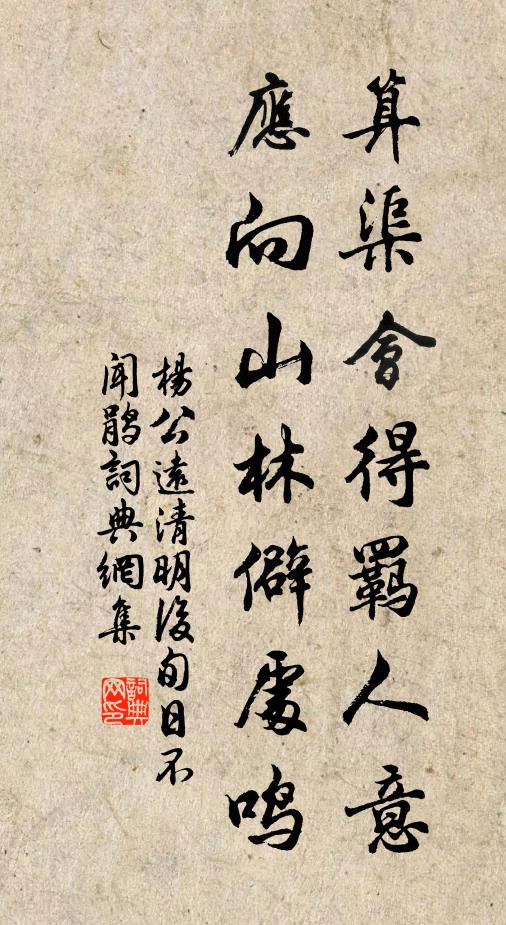 算渠會得羈人意
應向山林僻處鳴
楊公遠清明後旬日不
聞鹃詞典網集
詞典網印